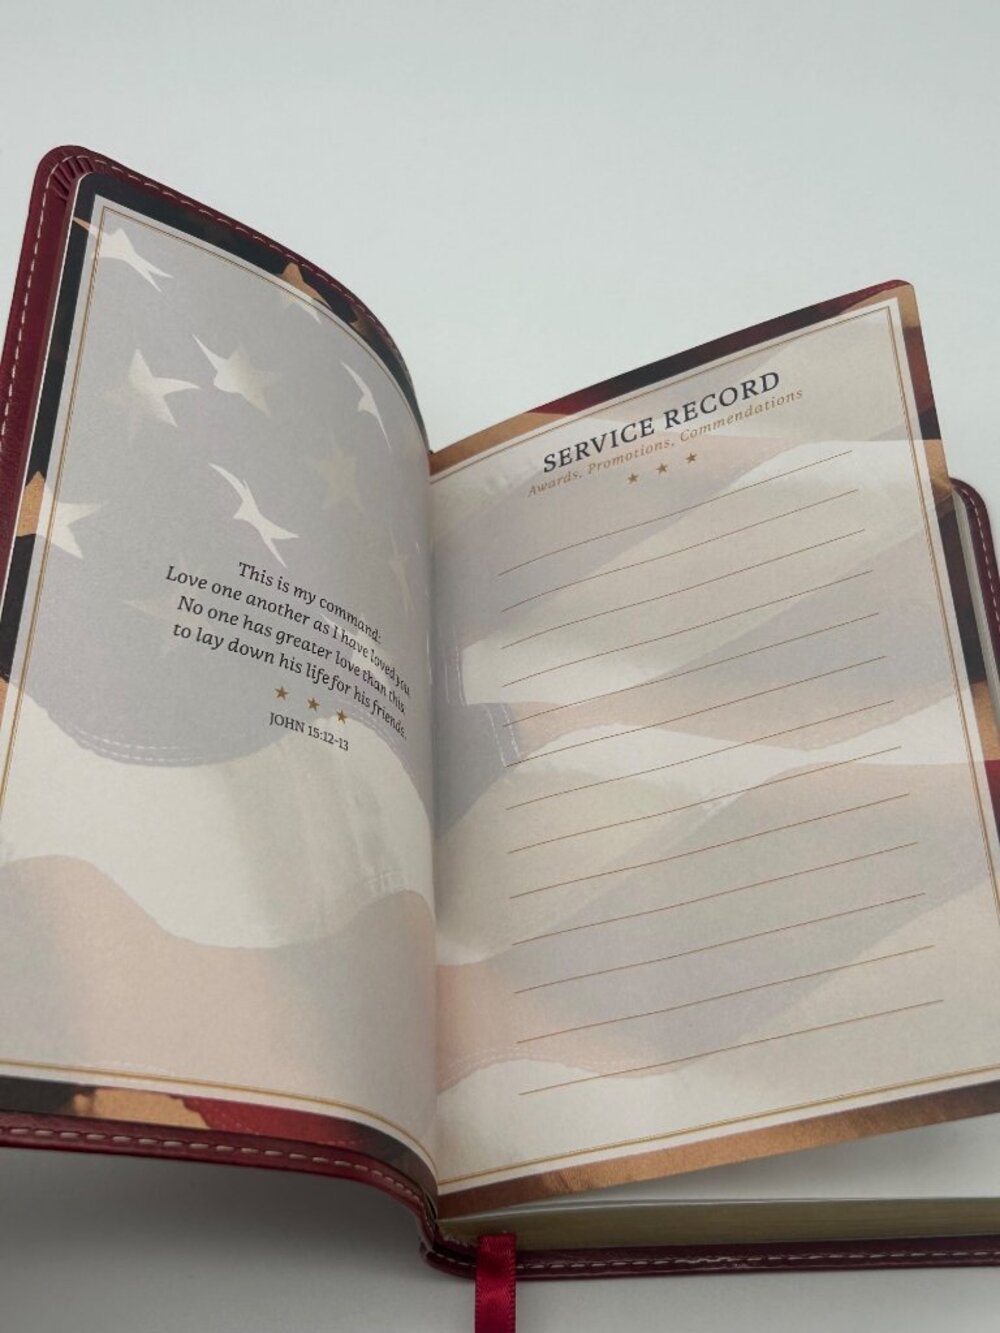 This is my command:
Love one another as I have loved you.
No one has greater love than this,
to lay down his life for his friends.
JOHN 15:12-13
SERVICE RECORD
Awards, Promotions, Commendations